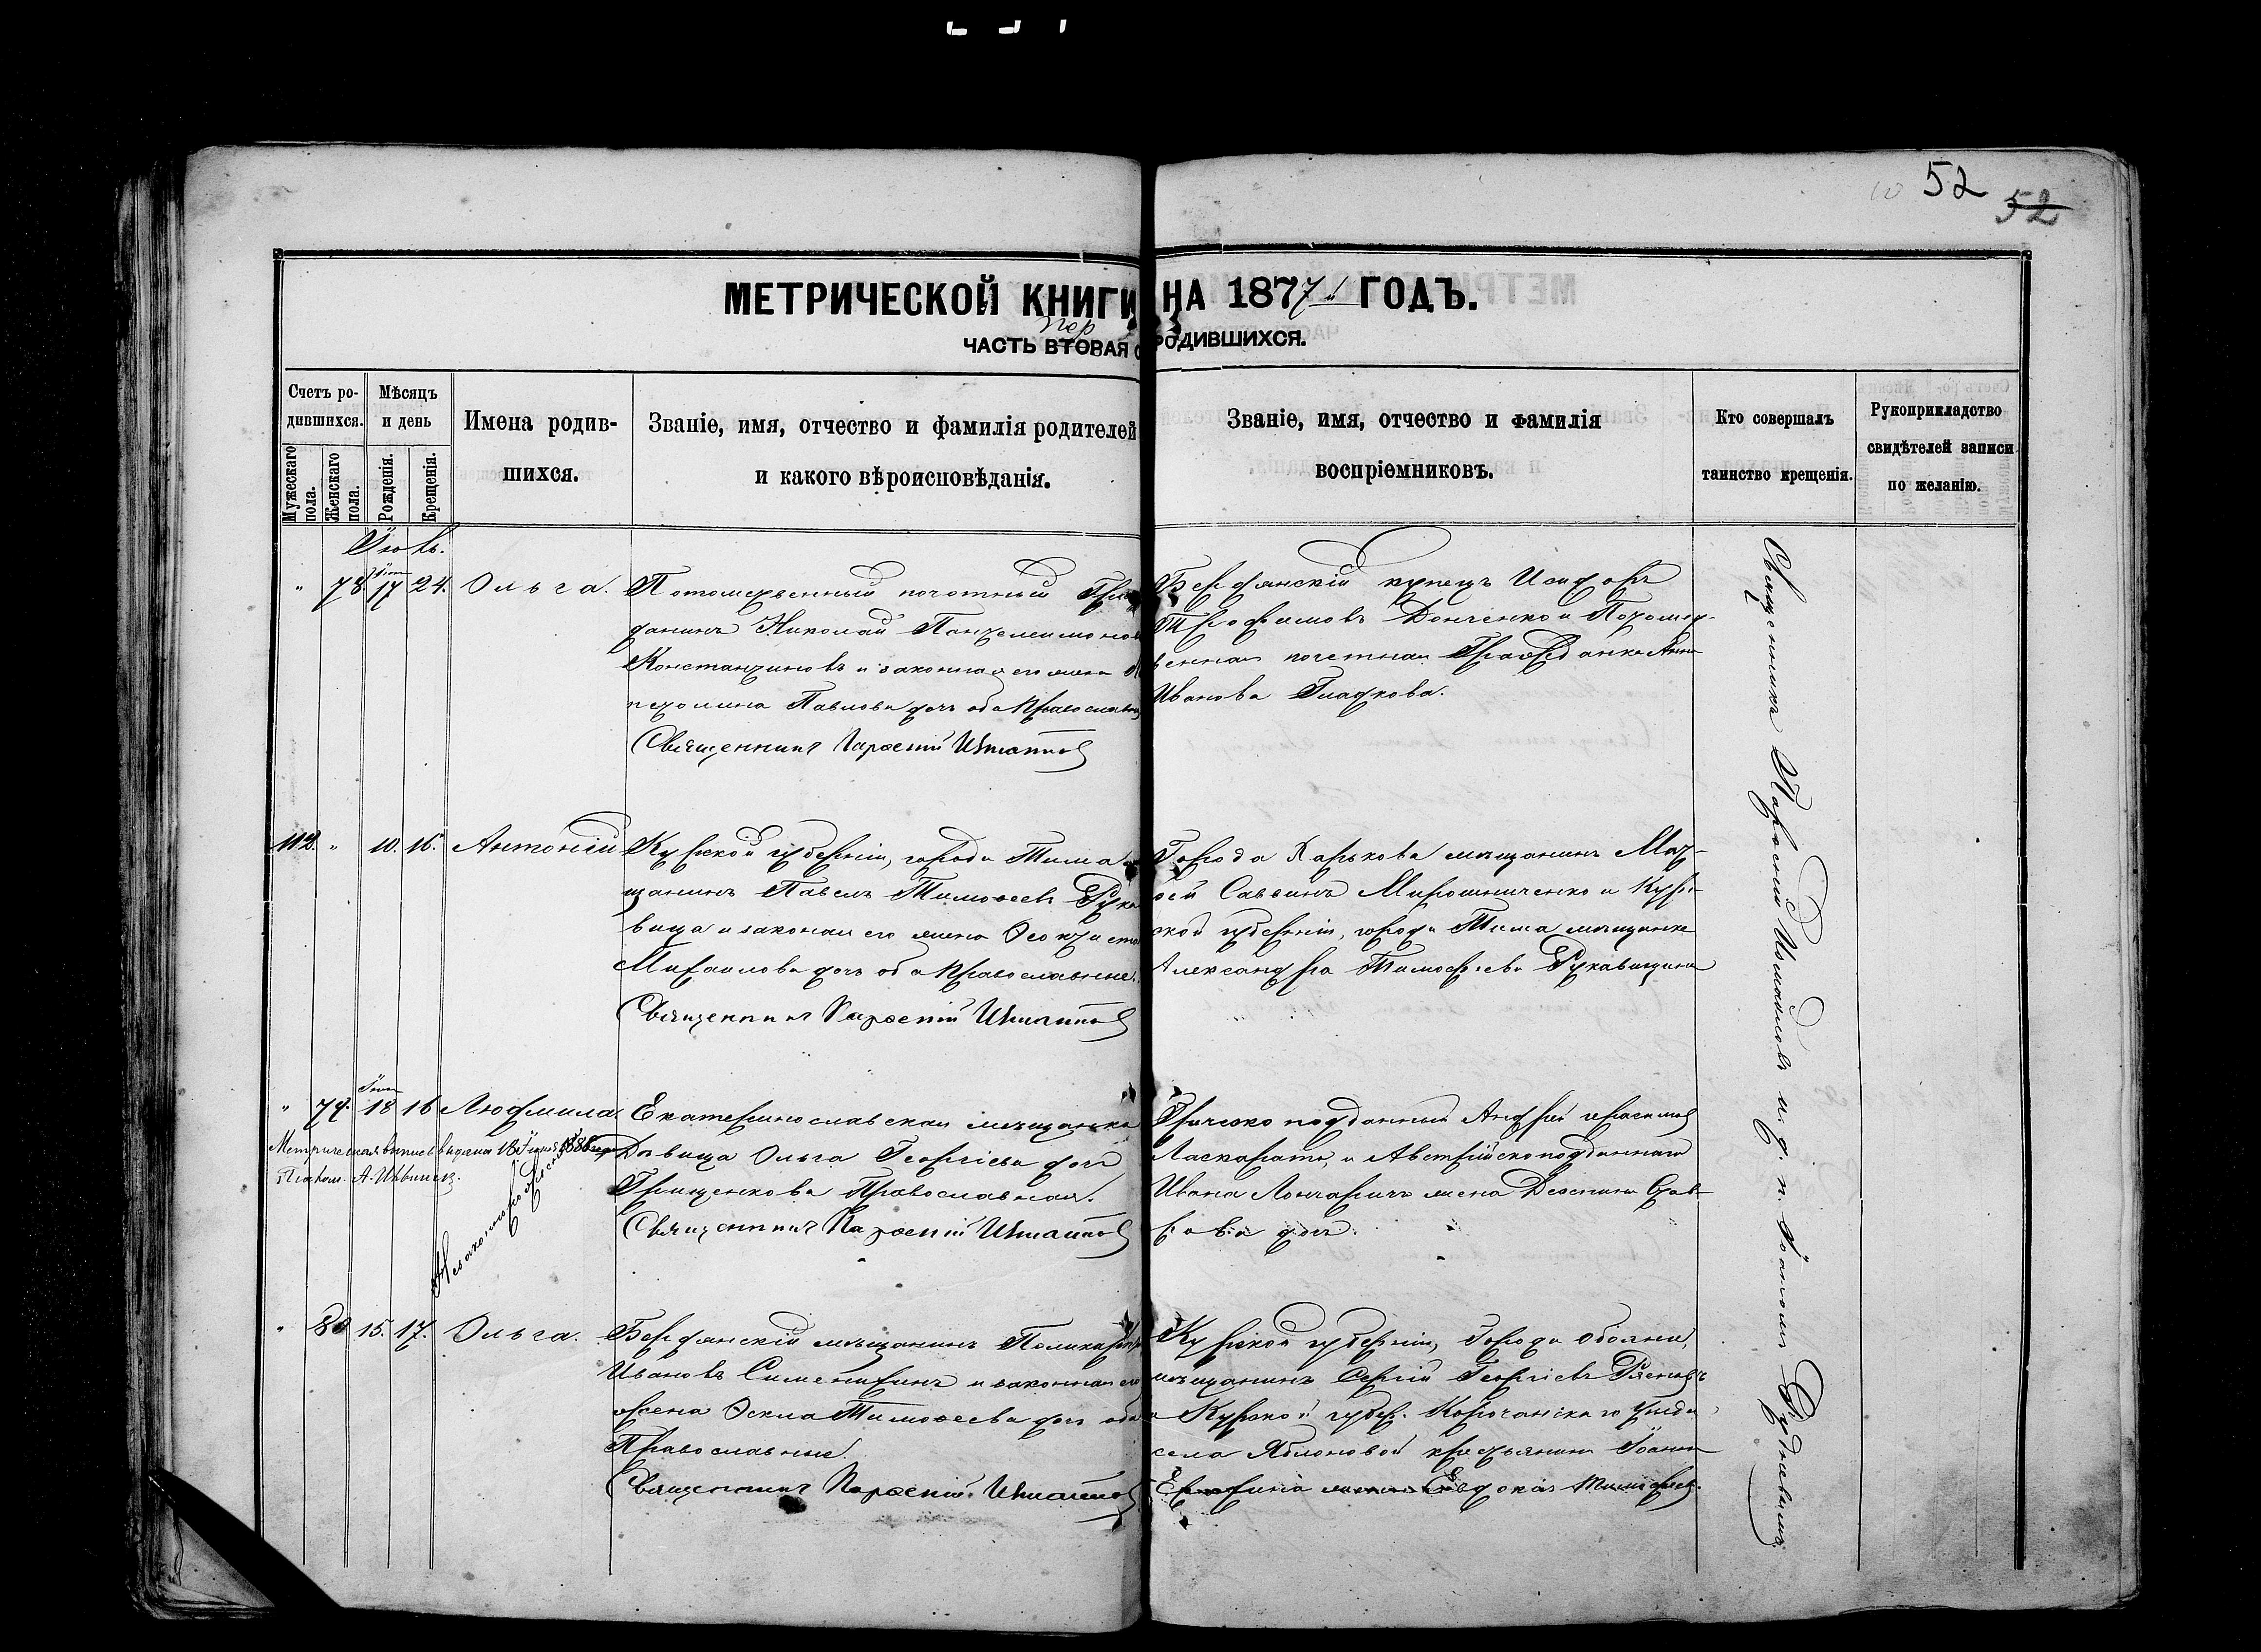 52
52
МЕТРИЧЕСКОЙ КНИГИ НА 1877 ГОДЪ.
пер
ЧАСТЬ ВТОРАЯ О РОДИВШИХСЯ.
Счетъ ро-
дившихся.
Мужескаго
пола.
Женскаго
пола.
Мѣсяцъ
и день
Рожденія.
Крещенія.
Имена родив-
шихся.
Званіе, имя, отчество и фамилія родителей
и какого вѣроисповѣданія.
Званіе, имя, отчество и фамилія
воспріемниковъ.
Кто совершалъ
таинство крещенія.
Рукоприкладство
свидѣтелей записи
по желанію.
" 78 17 24. Ольга.
Потомственный почотный Гра
данинъ Николай Пантелеимонов
Константиновъ и законная его жена
Павлова дочь оба Православны
Священникъ Парѳеній Измаиловъ
Бердянскій купецъ Исидоръ
Трофимовъ Донченко и Потомст-
венная почетная Гражданка Анна
Иванова Гладкова.
112. " 10. 16. Антоній
Курской губерніи, города Тима
щанинъ Павелъ Тимоѳеевъ Рука
вица и законая его жена Ѳеоктиста
Михаилова дочь оба Православные.
Священникъ Парѳеній Измаиловъ
Города Харькова мѣщанинъ Мат-
ѳей Саввинъ Мирошниченко и Кур-
ской губерніи, города Тима мѣщанка
Александра Тимофеева Рукавицина
" 79. 18 16 Людмила
Метрическая выпись выдана
Незаконнорожденная
Екатеринославская мѣщанка
Дѣвица Ольга Георгіева дочь
Грищенкова Православная.
Священникъ Парѳеній Измаиловъ
Греческо подданный Андрей Герасимов
Ласкарато, и Австрійскоподданнаго
Ивана жена Деспина Сав-
вова дочь.
" 80 15. 17. Ольга.
Бердянскій мѣщанинъ Поликарпъ
Ивановъ Сименихинъ и законная его
жена Ѳекла Тимоѳеева дочь оба
Православные.
Священникъ Парѳеній Измаиловъ
Курской губерніи, Города Обояни,
мѣщанинъ Сергій Георгіевъ
и Курской губер. Корочанскаго уезда
села Яблоновой крестьянина Іоанна
жена Евдокія Тимофеев.
Священникъ Парѳеній Измаиловъ и. д. п. Іоанномъ